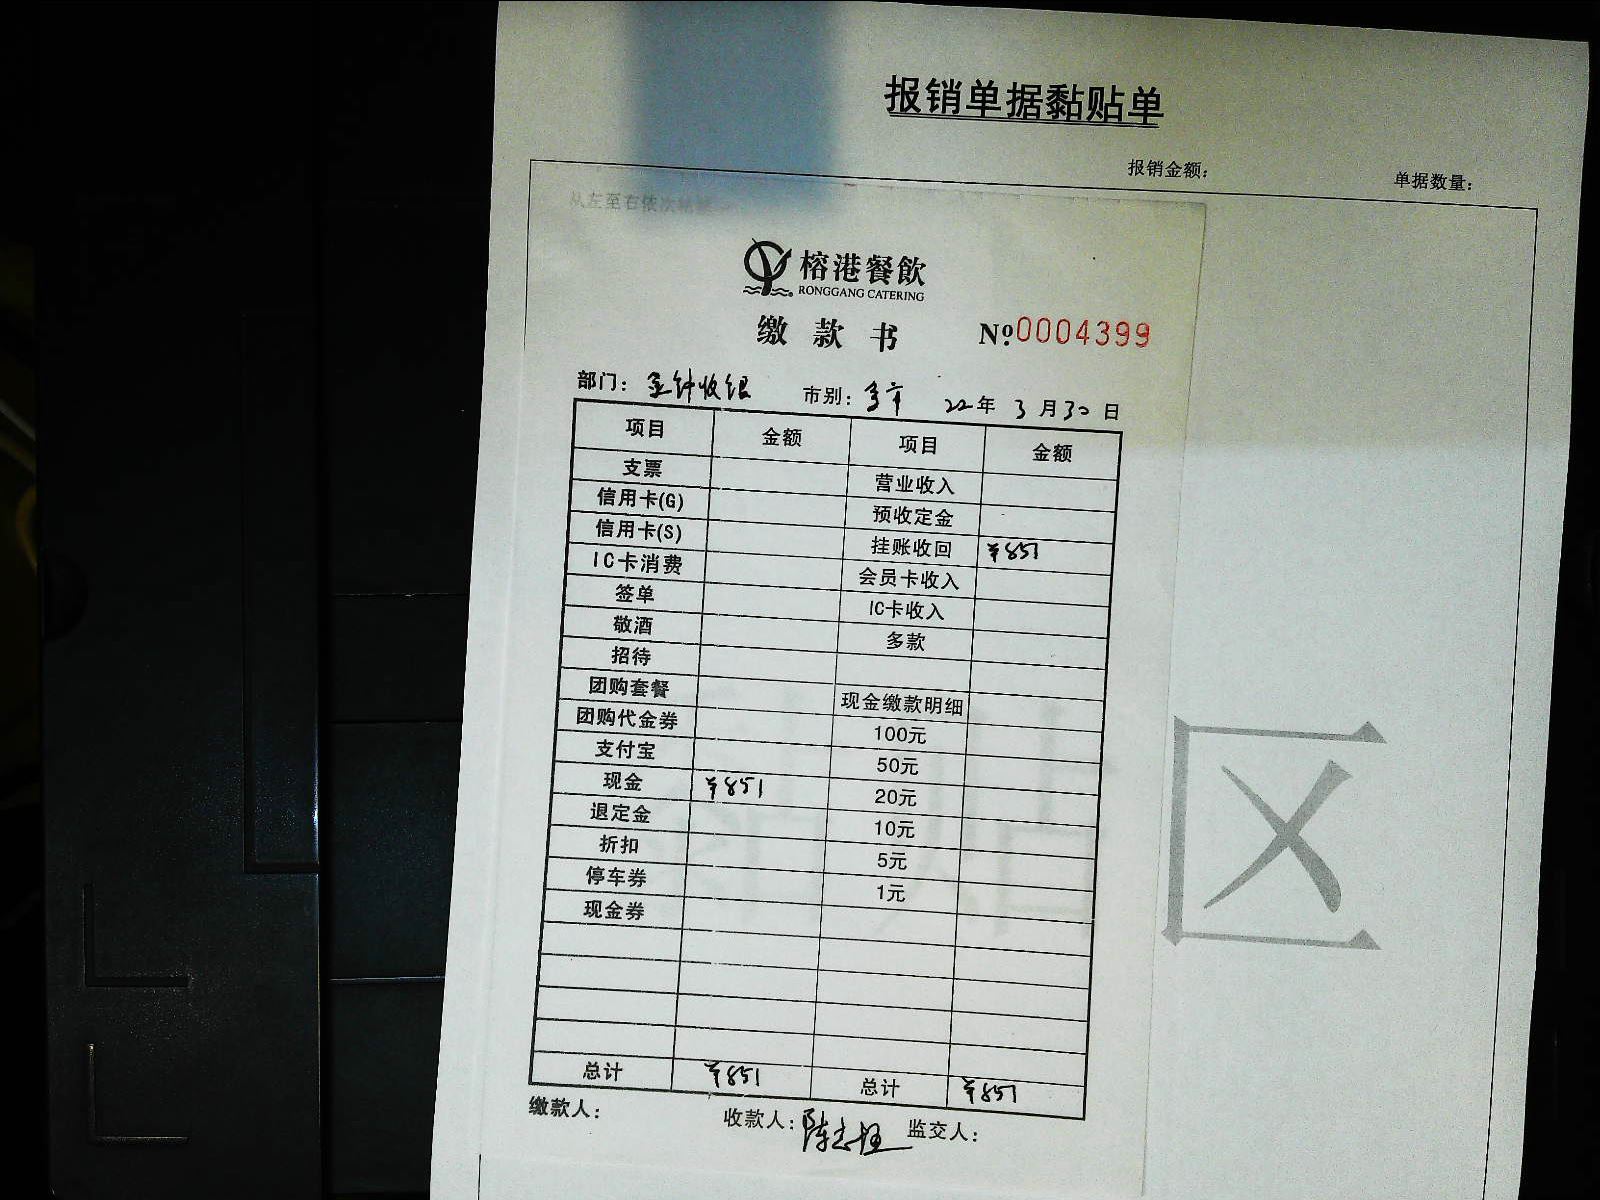 报销单据黏贴单
报销金额: 单据数量:
从左至右依次粘贴
榕港餐飲
RONGGANG CATERING
缴款书 №0004399
部门: 金钟收银 市别: 22年3月30日
项目 金额 项目 金额
支票 营业收入
信用卡(G) 预收定金
信用卡(S) 挂账收回 ¥851
IC卡消费 会员卡收入
签单 IC卡收入
敬酒 多款
招待
团购套餐 现金缴款明细
团购代金券 100元
支付宝 50元
现金 ¥851 20元
退定金 10元
折扣 5元
停车券 1元
现金券
总计 ¥851 总计 ¥851
缴款人: 收款人: 监交人:
区